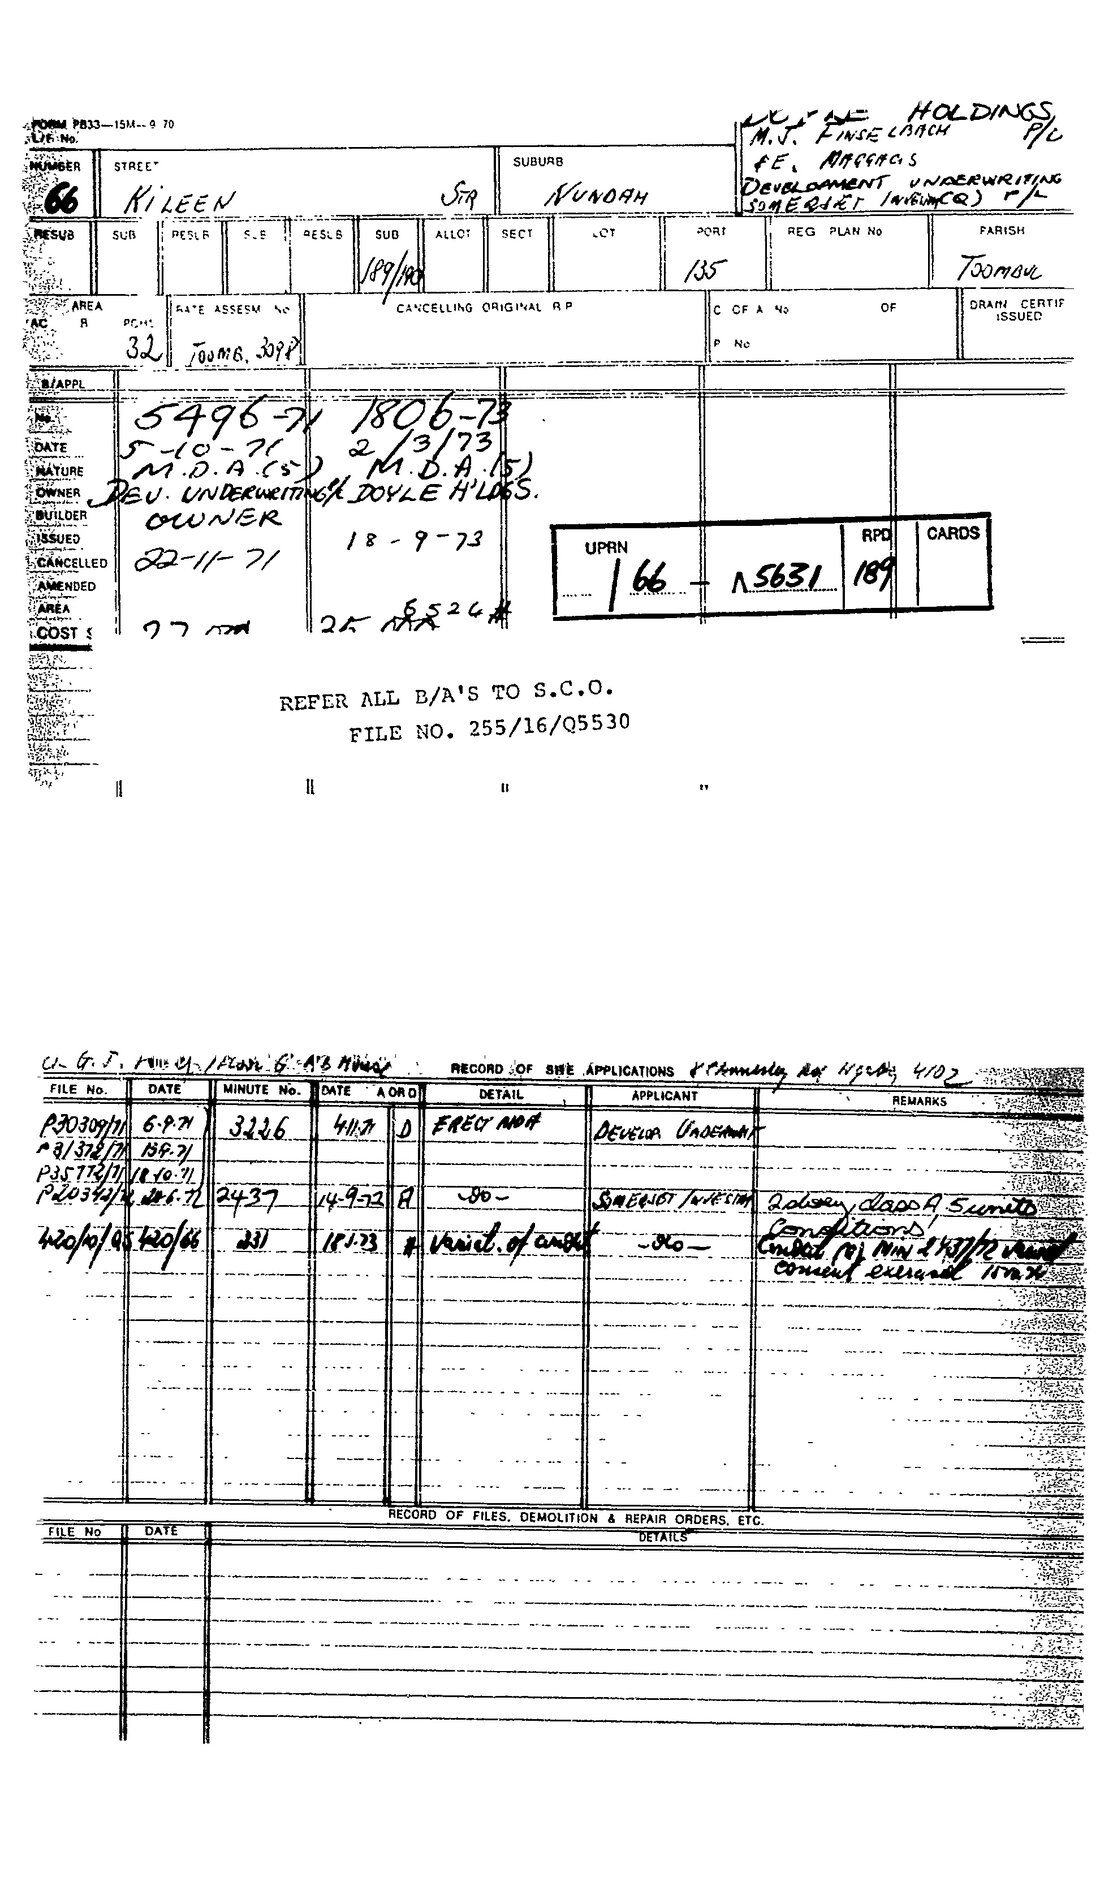 FORM PB33—15M—9 70
L/F No.
HOLDINGS
M.J. FINSELBACH P/L
& E. MAGGACIS
DEVELOPMENT UNDERWRITING
SOMERSET P/L
NUMBER STREET SUBURB
66 KILEEN STR NUNDAH
RESUB SUB RESUB SUB RESUB SUB ALLOT SECT LOT PORT REG PLAN No PARISH
189/190 135 TOOMBUL
AREA RATE ASSESM No CANCELLING ORIGINAL R P C OF A No OF DRAIN CERTIF
AC R PCHS ISSUED
32 TOOMB. 3098 P No
B/APPL
No. 5496-71 1806-73
DATE 5-10-71 2/3/73
NATURE M.D.A.(5) M.D.A.(5)
OWNER DEV. UNDERWRITING DOYLE H'LDGS.
BUILDER OWNER
ISSUED 18-9-73
CANCELLED 22-11-71
AMENDED
AREA 6524
COST $
UPRN RPD CARDS
66 — 5631 189
REFER ALL B/A'S TO S.C.O.
FILE NO. 255/16/Q5530
RECORD OF SITE APPLICATIONS 4102
FILE No. DATE MINUTE No. DATE A OR D DETAIL APPLICANT REMARKS
P30309/71 6.9.71 3226 4.11.71 D ERECT MDA DEVELOP UNDERWRIT
P31372/71 15.9.71
P35772/71 18.10.71
P20342/72 28.6.72 2437 14-9-72 A -do- SOMERSET 2 storey class A 5 units
Conditions
420/66 331 18.1.73 A Variat. of -do- 2437/72
consent exercised
RECORD OF FILES, DEMOLITION & REPAIR ORDERS, ETC.
FILE No DATE DETAILS